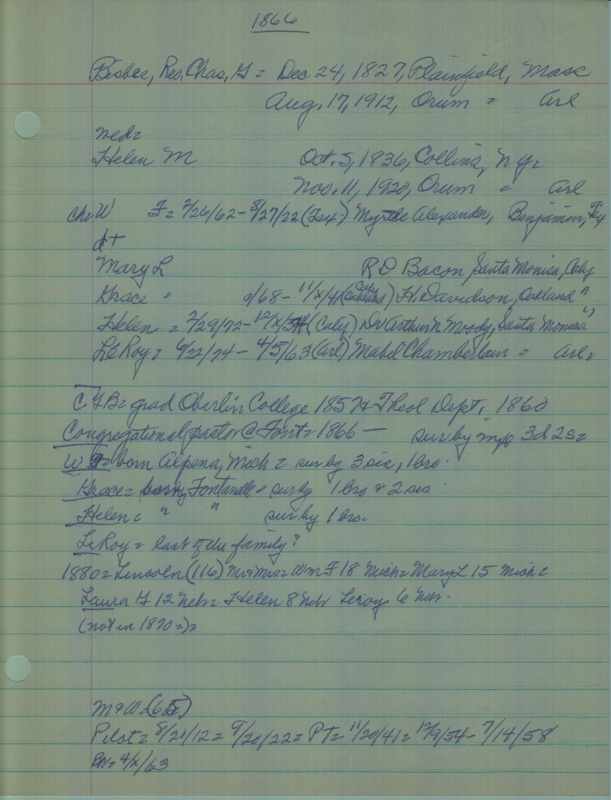 1866
Bisbee, Rev, Chas, G = Dec 24, 1827, Plainfield, Mass
Aug, 17, 1912, Orum = Arl
med=
Helen M Oct. 5, 1836, Collins, N Y=
Nov. 11, 1920, Orum = Arl
ch= W F = 2/26/62 - 8/27/22 (Tex) Myrtle Alexander, Benjamin,
dt
Mary L R D Bacon Santa Monica, Caly
Grace = /68 - 11/x/4 H Davidson, Oakland "
Helen = 2/29/72 - (Caly) Dr Arthur N Moody, Santa Monica "
LeRoy = 4/22/74 - 4/5/63 (Arl) Mabel Chamberlain = Arl,
C G B = grad Oberlin College 1857 & Theol Dept, 1860
Congregational pastor @ Font = 1866 — sur by 3d 2s =
W F = born Alpena, Mich = sur by 3 sis, 1 bro.
Grace = Fontanelle sur by 1 bro & 2 sis
Helen = " " sur by 1 bro.
LeRoy = last of the family?
1880 = Lincoln (116) Mr & Mrs = Wm F 18 Mich = Mary L 15 Mich =
Laura G 12 Neb = Helen 8 Neb Leroy 6 Neb.
(not in 1870 =)=
M & W = (65)
Pilot = 8/21/12 = 9/20/22 = PT = 11/20/41 = 12/9/54 - 7/14/58
4/x/63